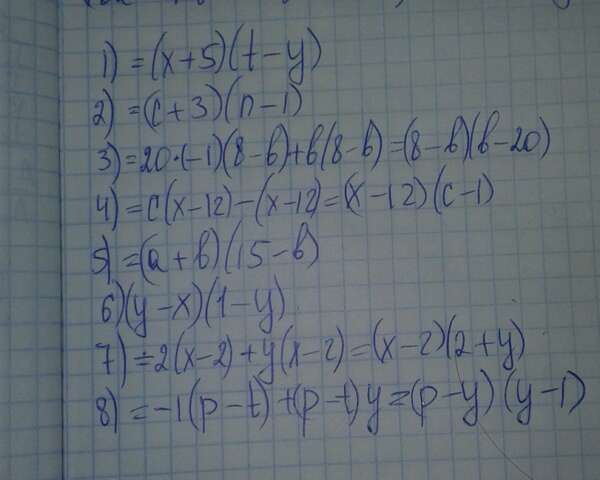 1) = (x+5)(t-y)
2) = (c+3)(n-1)
3) = 20·(-1)(8-b)+b(8-b)=(8-b)(b-20)
4) = c(x-12)-(x-12)=(x-12)(c-1)
5) = (a+b)(15-b)
6) (y-x)(1-y)
7) = 2(x-2)+y(x-2)=(x-2)(2+y)
8) = -1(p-t)+(p-t)y=(p-y)(y-1)